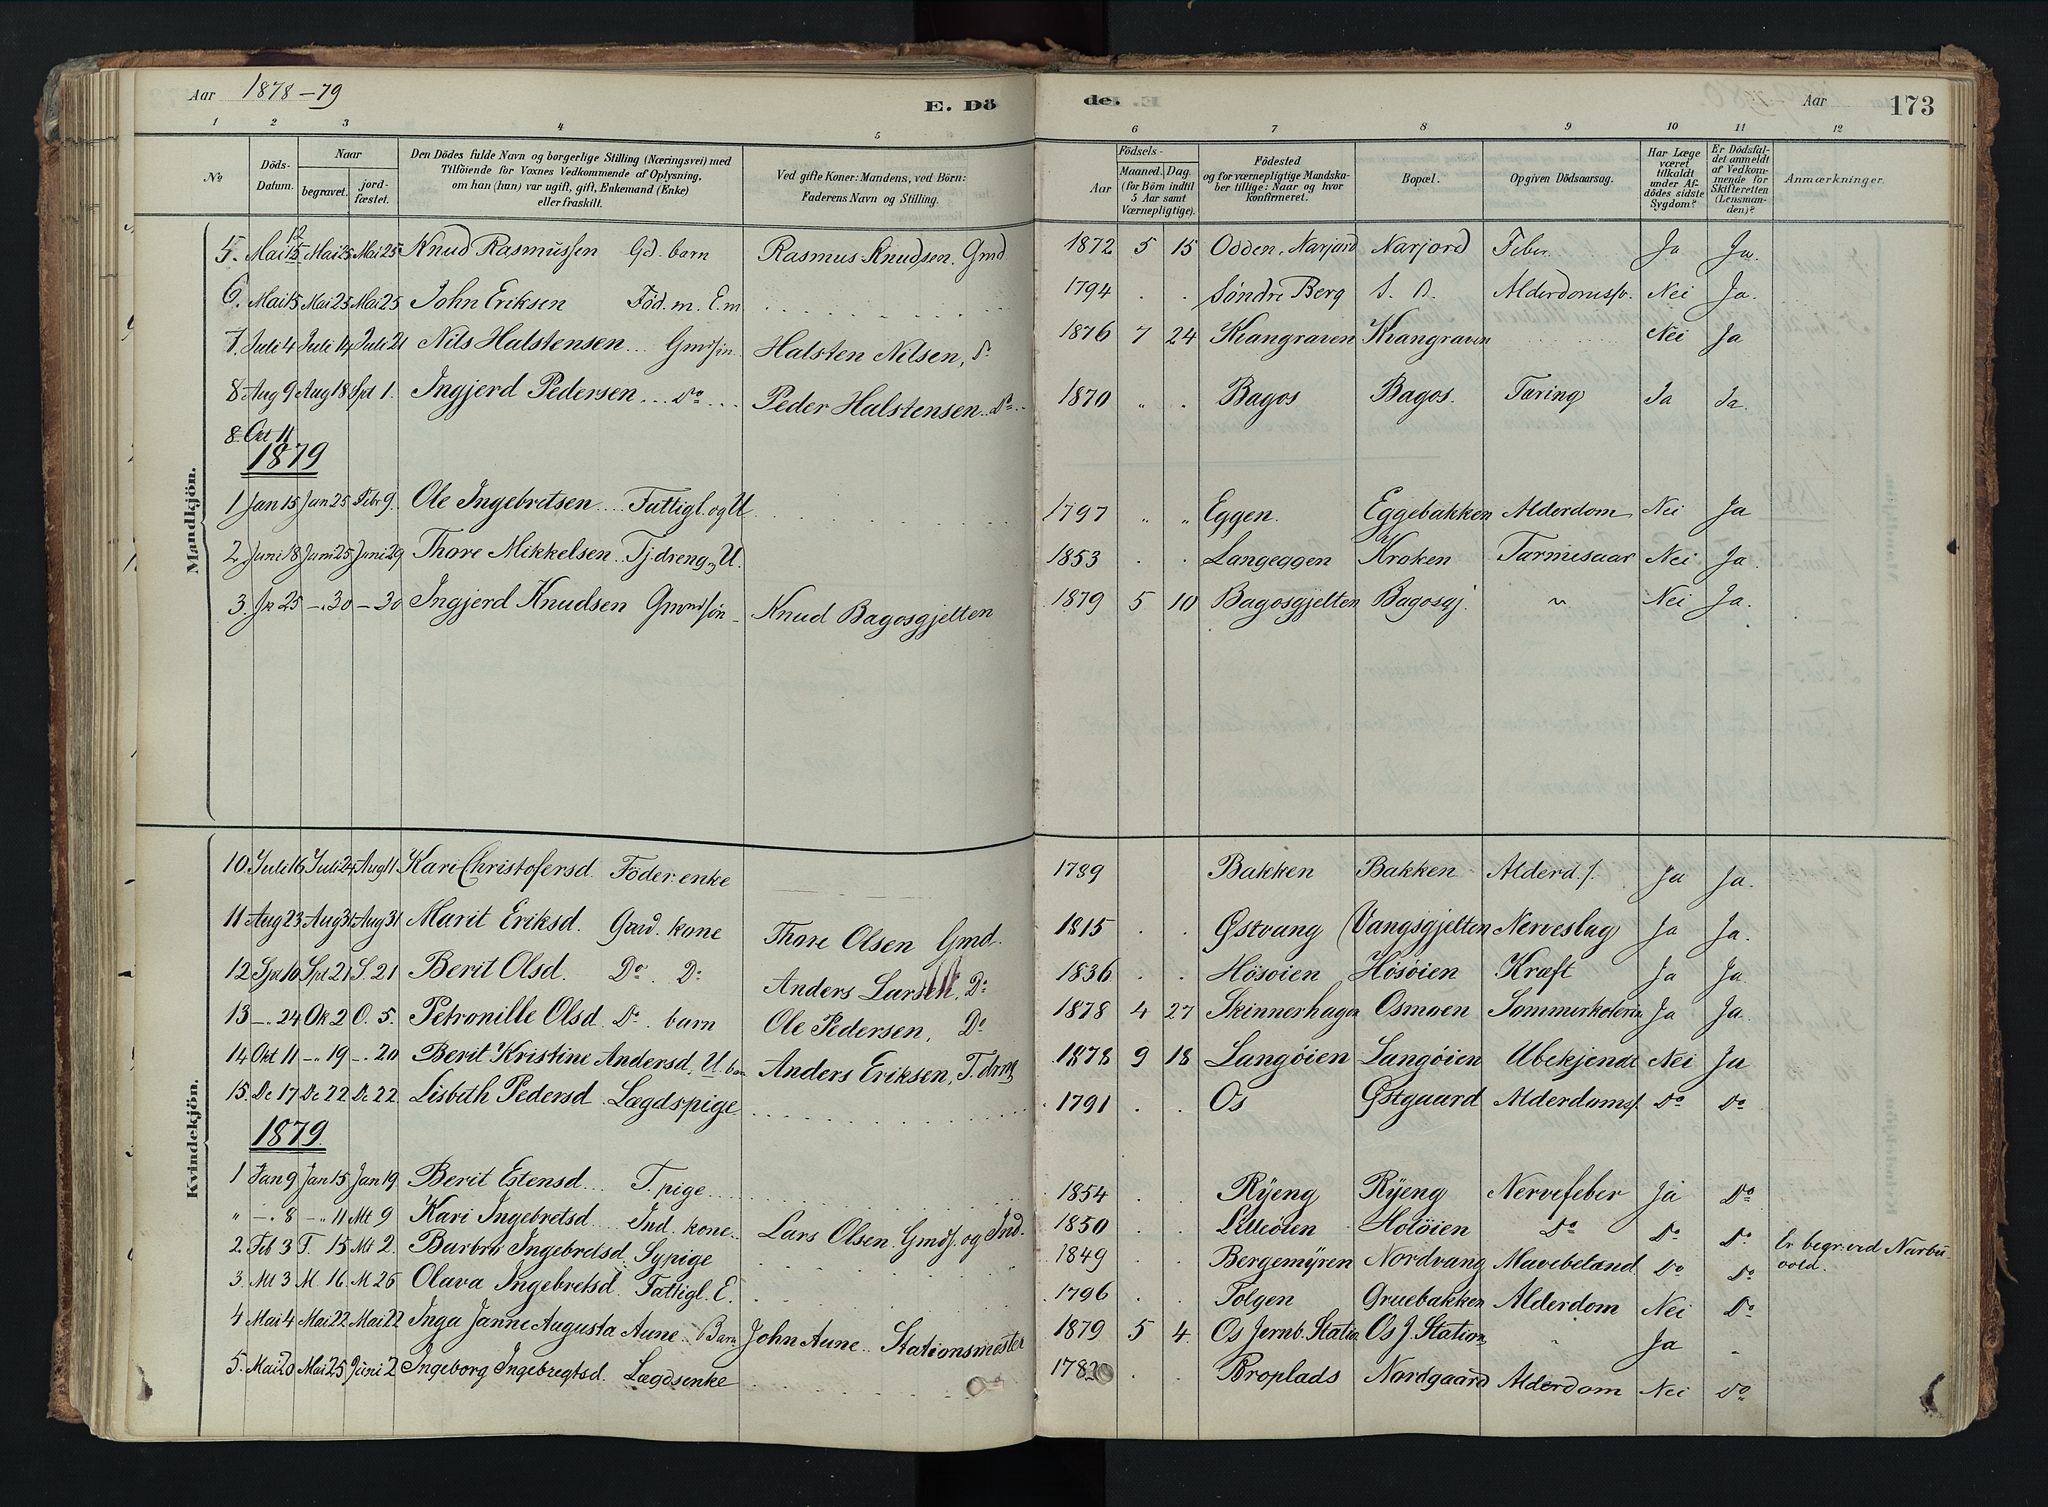 Aar 1878-79 E. Dö de. Aar 173
1 2 3 4 5 6 7 8 9 10 11 12
No Döds-Datum. Naar begravet. jord-fæstet. Den Dödes fulde Navn og borgerlige Stilling (Næringsvei) med Tilföiende for Voxnes Vedkommende af Oplysning, om han (hun) var ugift, gift, Enkemand (Enke) eller fraskilt. Ved gifte Koner: Mandens, ved Börn: Faderens Navn og Stilling. Födsels- Aar Maaned. Dag. (for Börn indtil 5 Aar samt Værnepligtige). Födested og for værnepligtige Mandska-ber tillige: Naar og hvor konfirmeret. Bopæl. Opgiven Dödsaarsag. Har Læge været tilkaldt under Af-dödes sidste Sygdom? Er Dödsfal-det anmeldt af Vedkom-mende for Skifteretten (Lensman-den)? Anmærkninger
Mandkjön.
5. Mai 15 12 Mai 25 Mai 25 Knud Rasmussen Gd. barn Rasmus Knudsen, Gmd 1872 5 15 Odden, Narjord Narjord Feber Ja Ja
6. Mai 15 Mai 25 Mai 25 John Eriksen Föd. m. E.m 1794 . . Søndre Berg S. B. Alderdomssv. Nei Ja.
7. Juli 4 Juli 14 Juli 21 Nils Halstensen Gmdsøn Halsten Nilsen, do 1876 7 24 Krangraven Krangraven Nei Ja
8 Aug 9 Aug 18 Spt 1. Ingjerd Pedersen Do Peder Halstensen Do 1870 " . Bagos Bagos. Tæring Ja Ja.
8. Okt 11
1879
1 Jan 15 Jan 25 Febr 9. Ole Ingebretsen Fattigl. og U 1797 " " Eggen. Eggebakken Alderdom Nei Ja
2 Juni 18 Juni 25 Juni 29 Thore Mikkelsen Tjdreng, U. 1853 . . Langeggen Kroken Tarmesaar Nei Ja.
3. 25 - 30 - 30 Ingjerd Knudsen Gmandsøn Knud Bagosgjelten 1879 5 10 Bagosgjelten Bagosgj. " Nei Ja.
Kvindekjön.
10. Juli 16 Juli 24 Aug 11 Kari Christofersd. Föder. enke 1789 Bakken Bakken Alderd. s. Ja Ja.
11 Aug 23 Aug 31 Aug 31 Marit Eriksd. Gard. kone Thore Olsen Gmd. 1815 . . Østvang (Vangsgjelten Nerveslag Ja Ja.
12 Spt 10 Spt 21 S. 21 Berit Olsd. Do. Do Anders Larsen, Do 1836 . . Hösøien Hösøien Kræft Ja Ja
13 -" 24 Ok 2 O. 5. Petronille Olsd Do. barn Ole Pedersen, Do 1878 4 27 Skinnerhagen Osmoen Sommerkolerin Ja Ja.
14 Okt 11 -" 19 -" 20 Berit Kristine Andersd, U. barn Anders Eriksen, T. dreng 1878 9 18 Langøien Langøien Ubekjende Nei Ja
15. De 17 De 22 De 22. Lisbeth Pedersd Lægdspige 1791 . . Os Østgaard Alderdoms s. Do Do
1879
1 Jan 9 Jan 15 Jan 19 Berit Estensd T. pige 1854 . . Rÿeng Rÿeng Nervefeber Ja Do
" -" 8 -" 11 Mt 9 Kari Ingebretsd Ind. kone Lars Olsen Gmds. og Ind. 1850 . . Hotøien Do Do Do
2. Feb 3 F. 15 Mt 2. Barbro Ingebretsd Sypige 1849 . . Bergemÿren Nordvang Mavebetænd Do Do Er begr. ved Narbu vold.
3. Mt 3 M. 16 M 26 Olava Ingebretsd. Fattigl. E. 1796 . . Tolgen Gruebakken Alderdom Nei Do
4 Mai 4 Mai 22 Mai 22 Inga Janne Augusta Aune Barn John Aune Stationsmester 1879 5 4. Os Jernb. Station Os J. Station " Ja "
5. Mai 20 Mai 25 Juni 2 Ingeborg Ingebregtsd. Lægdsenke . . Broplads Nordgaard Alderdom Nei Do